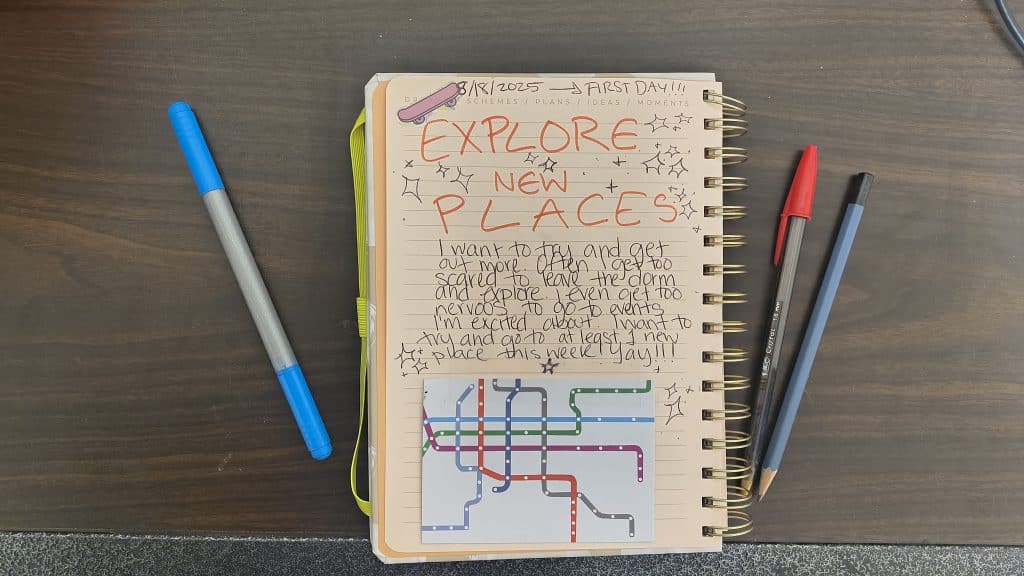 8/18/2025 → FIRST DAY!!!
SCHEMES / PLANS / IDEAS / MOMENTS
EXPLORE
NEW
PLACES
I want to try and get
out more. Often I get too
scared to leave the dorm
and explore. I even get too
nervous to go to events
I'm excited about. I want to
try and go to at least 1 new
place this week! Yay!!!